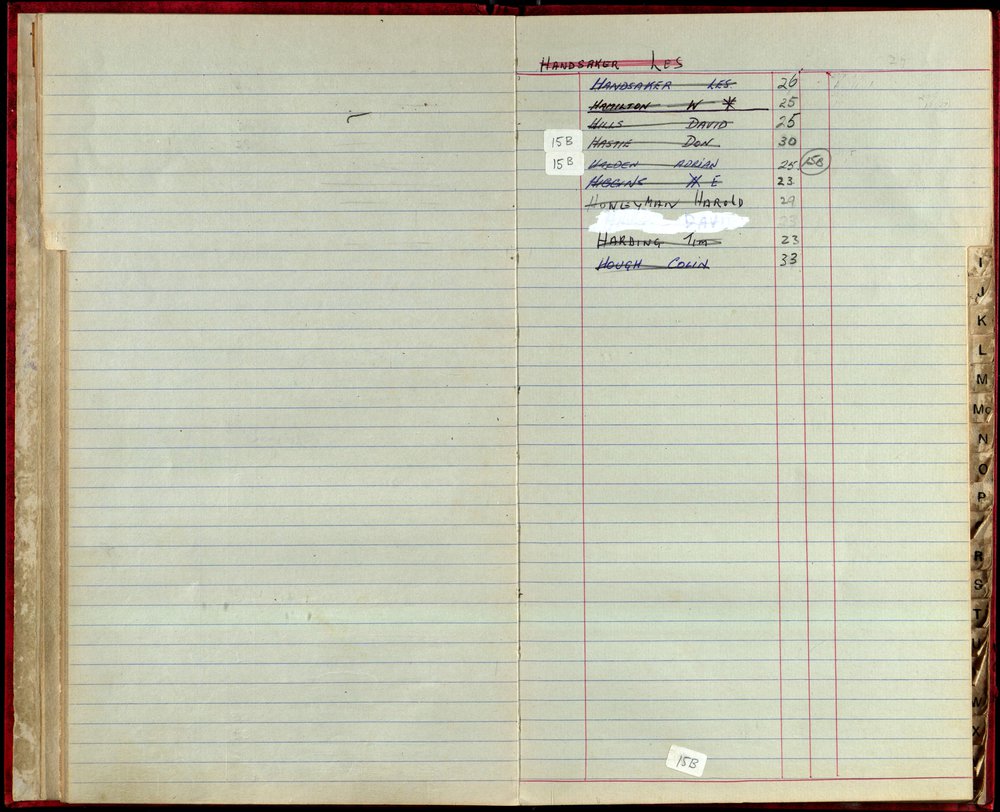 HANDSAKER LES
HANDSAKER LES. 26
HAMILTON W * 25
HILLS DAVID 25
15B HASTIE DON 30
15B HOLDEN ADRIAN 25 15B
HIGGINS H E 23
HONEYMAN HAROLD 29
DAV 23
HARDING TIM 23
HOUGH COLIN 33
15B
I
J
K
L
M
Mc
N
O
P
R
S
T
W
X